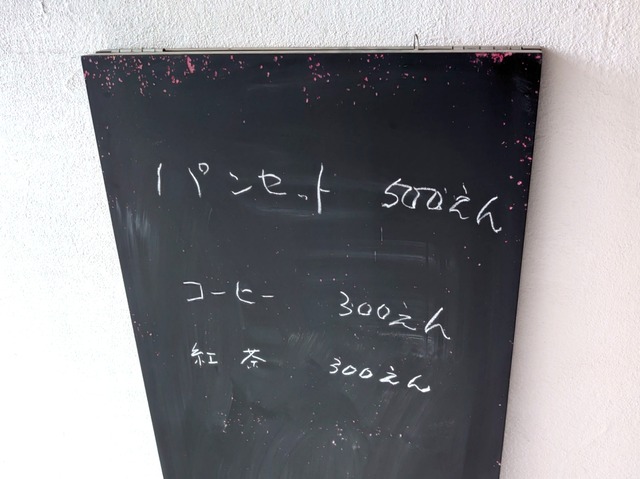 パンセット 500えん
コーヒー 300えん
紅茶 300えん